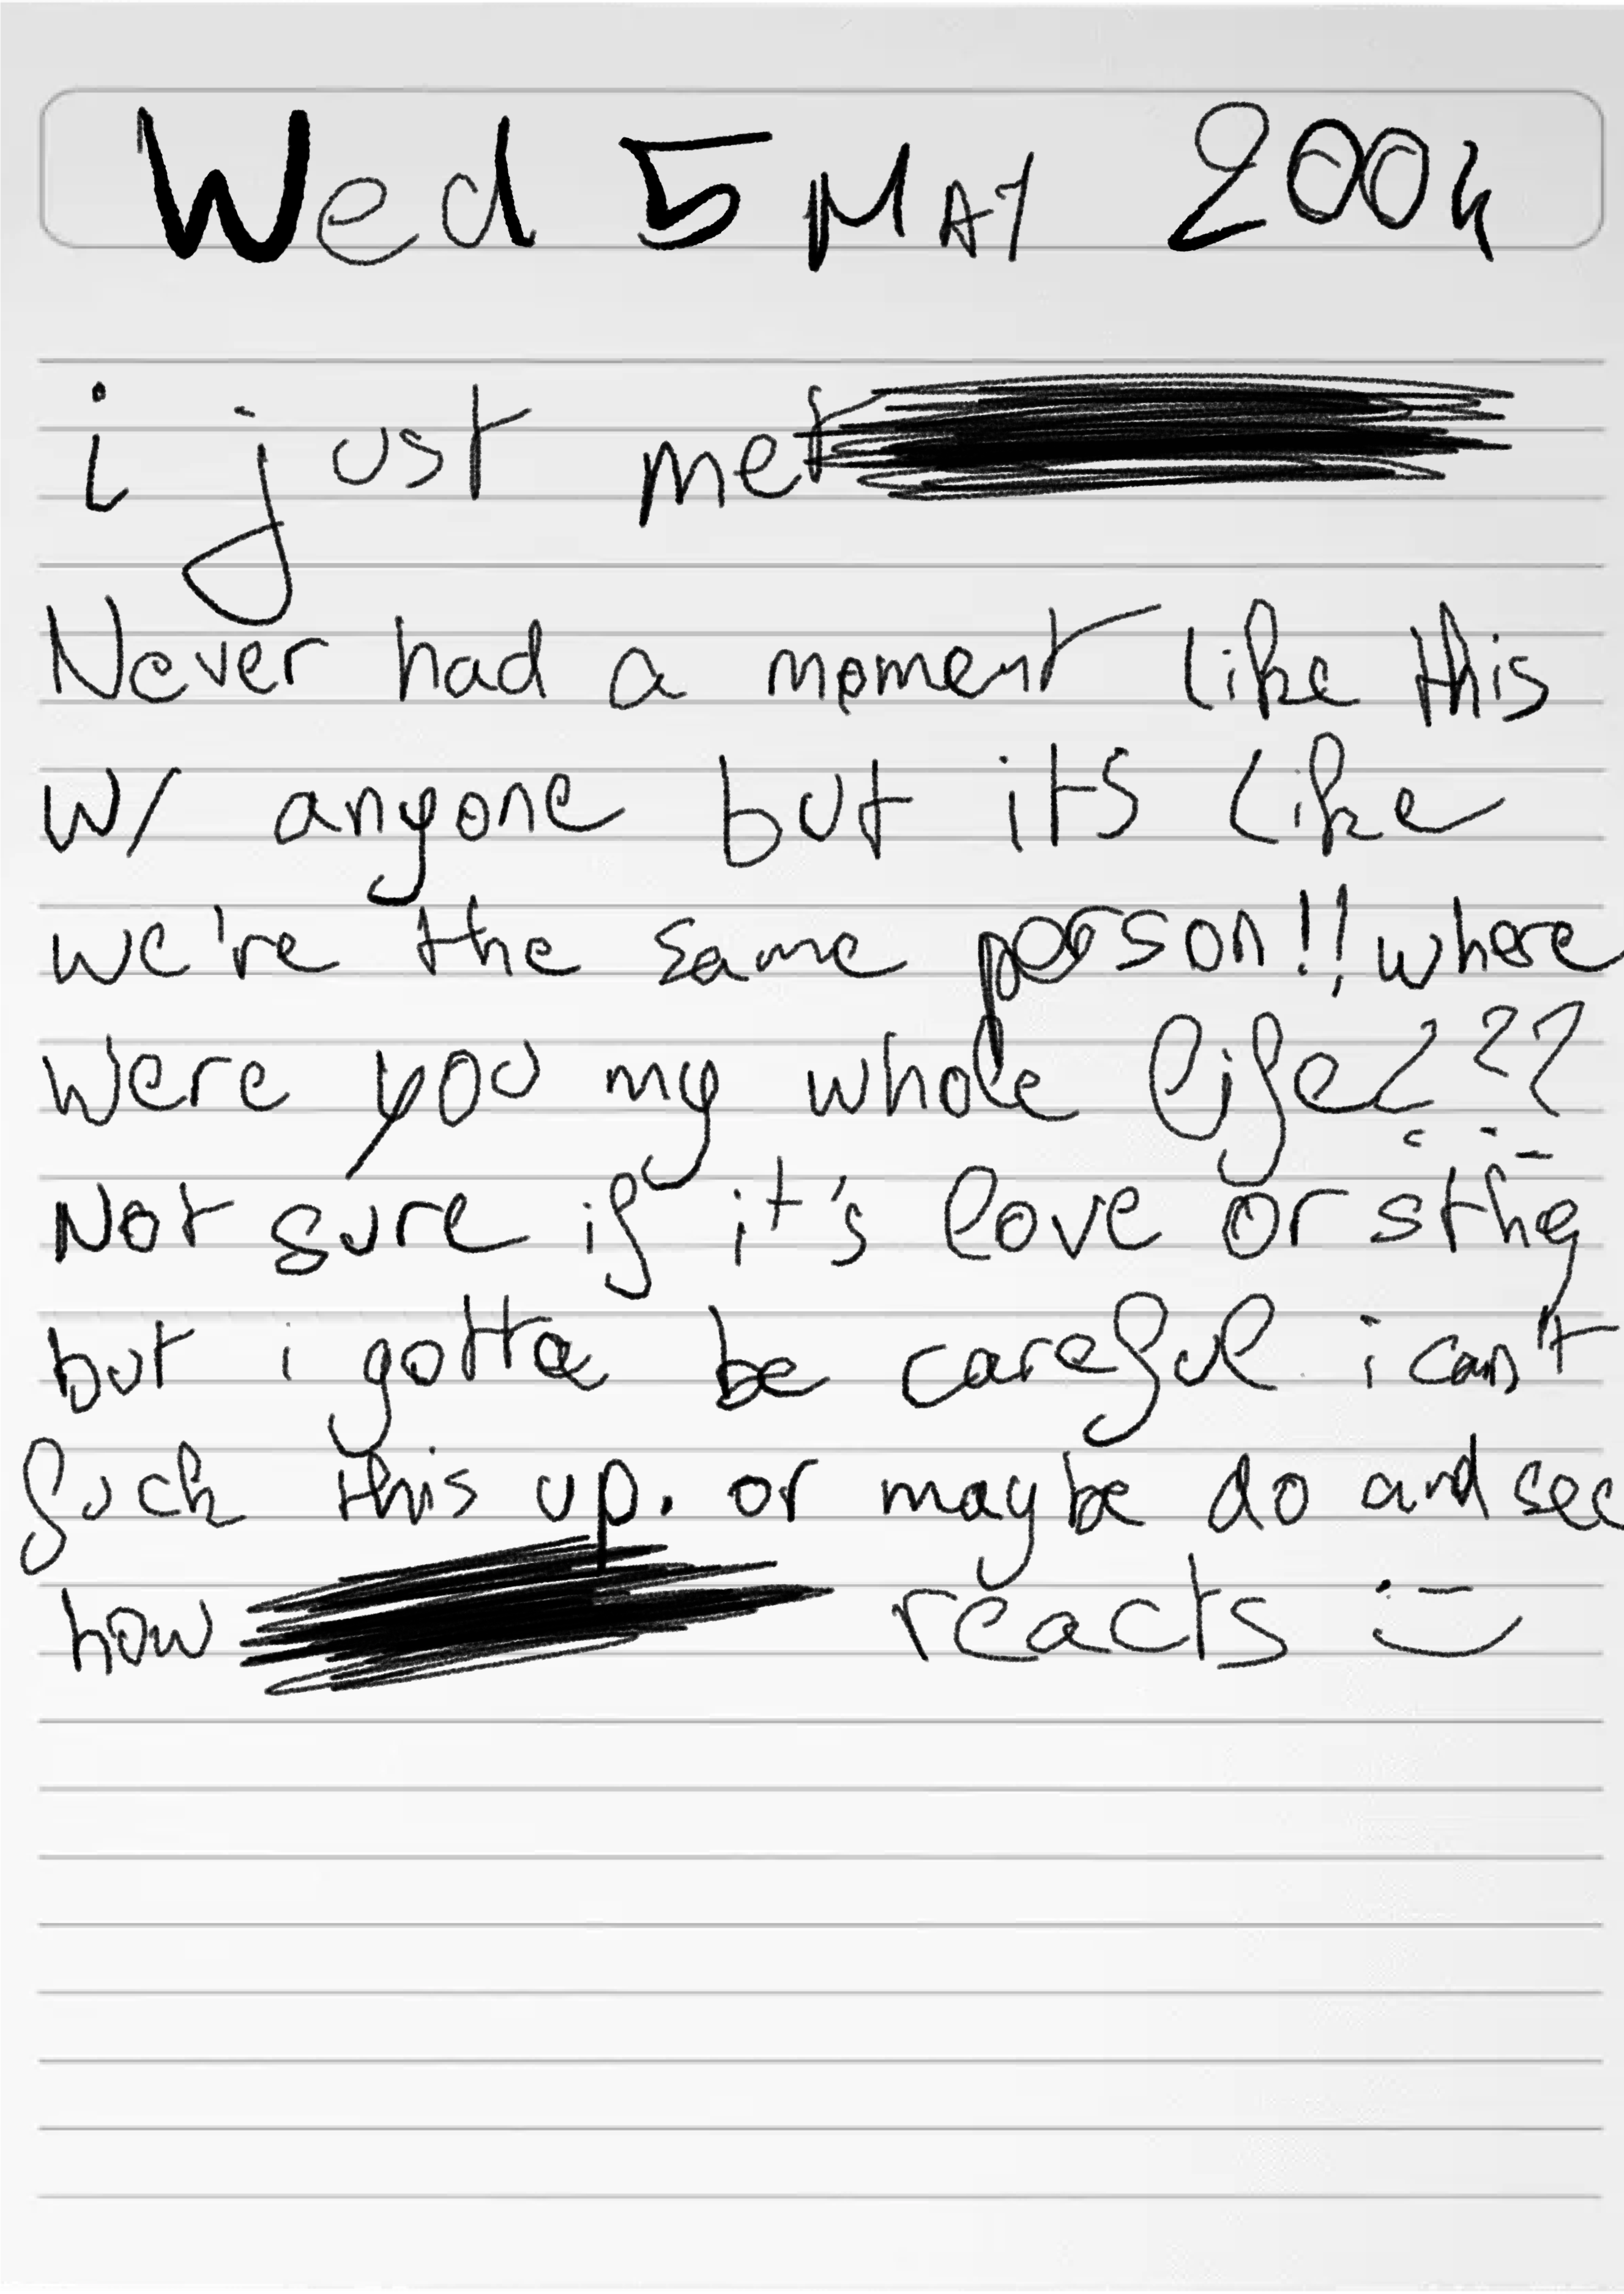 Wed 5 MAY 2004
i just met
Never had a moment like this
w/ anyone but it's like
we're the same person!! where
were you my whole life???
Not sure if it's love or sthg
but i gotta be careful i can't
fuck this up. or maybe do and see
how reacts :)